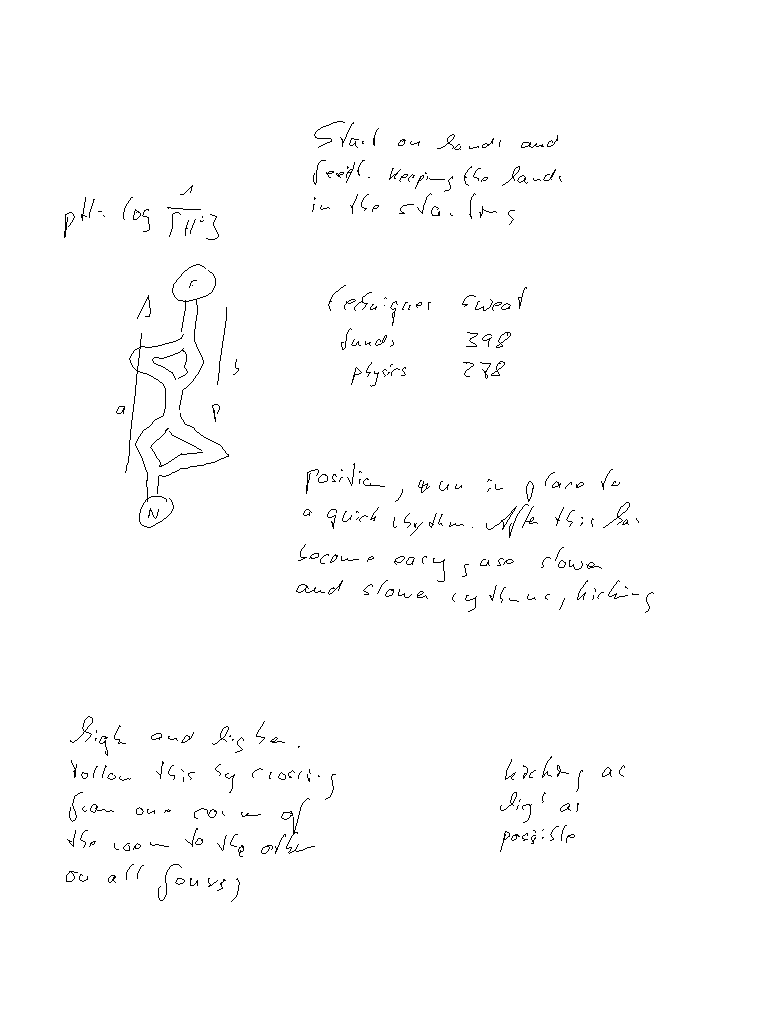 Start on hands and
feet. Keeping the hands
in the starting
pH = log 1/[H+]
F
A
b
a
p
N
techniques sweat
funds 398
physics 278
position, run in place to
a quick rhythm. After this has
become easy, use slower
and slower rythms, kicking
high and higher.
Follow this by crossing
from one corner of
the room to the other
on all fours,
kicking as
high as
possible